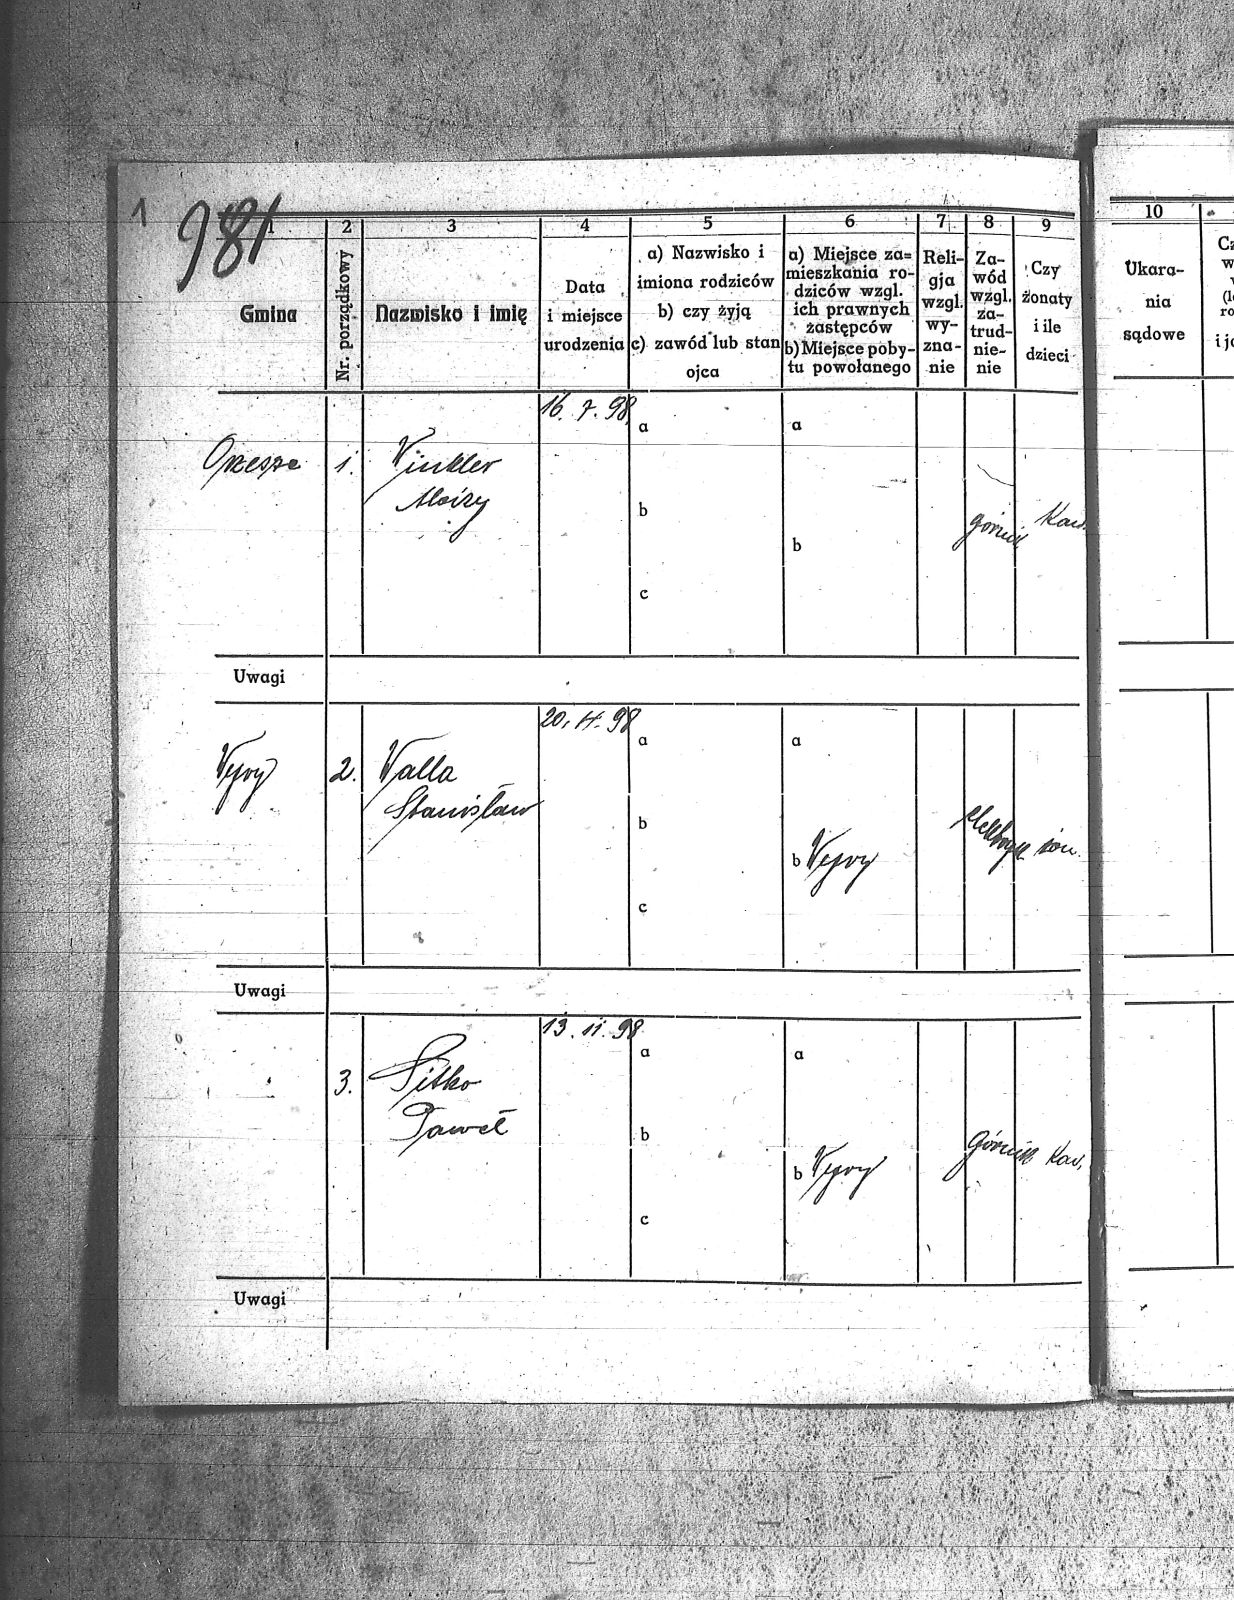 1
981
1
2
3
4
5
6
7
8
9
10
Gmina
Nr. porządkowy
Nazwisko i imię
Data
i miejsce
urodzenia
a) Nazwisko i
imiona rodziców
b) czy żyją
c) zawód lub stan
ojca
a) Miejsce za=
mieszkania ro-
dziców wzgl.
ich prawnych
zastępców
b) Miejsce poby-
tu powołanego
Reli-
gja
wzgl.
wy-
zna-
nie
Za-
wód
wzgl.
za-
trud-
nie-
nie
Czy
żonaty
i ile
dzieci
Ukara-
nia
sądowe
Orzesze
1.
Winkler
Alojzy
16. 7. 98
a
b
c
a
b
górnik
Kaw.
Uwagi
Wyry
2.
Walla
Stanisław
20. 4. 98
a
b
c
a
b Wyry
elektryk
żon.
Uwagi
3.
Sitko
Paweł
13. 11. 98
a
b
c
a
b Wyry
Górnik
Kaw.
Uwagi